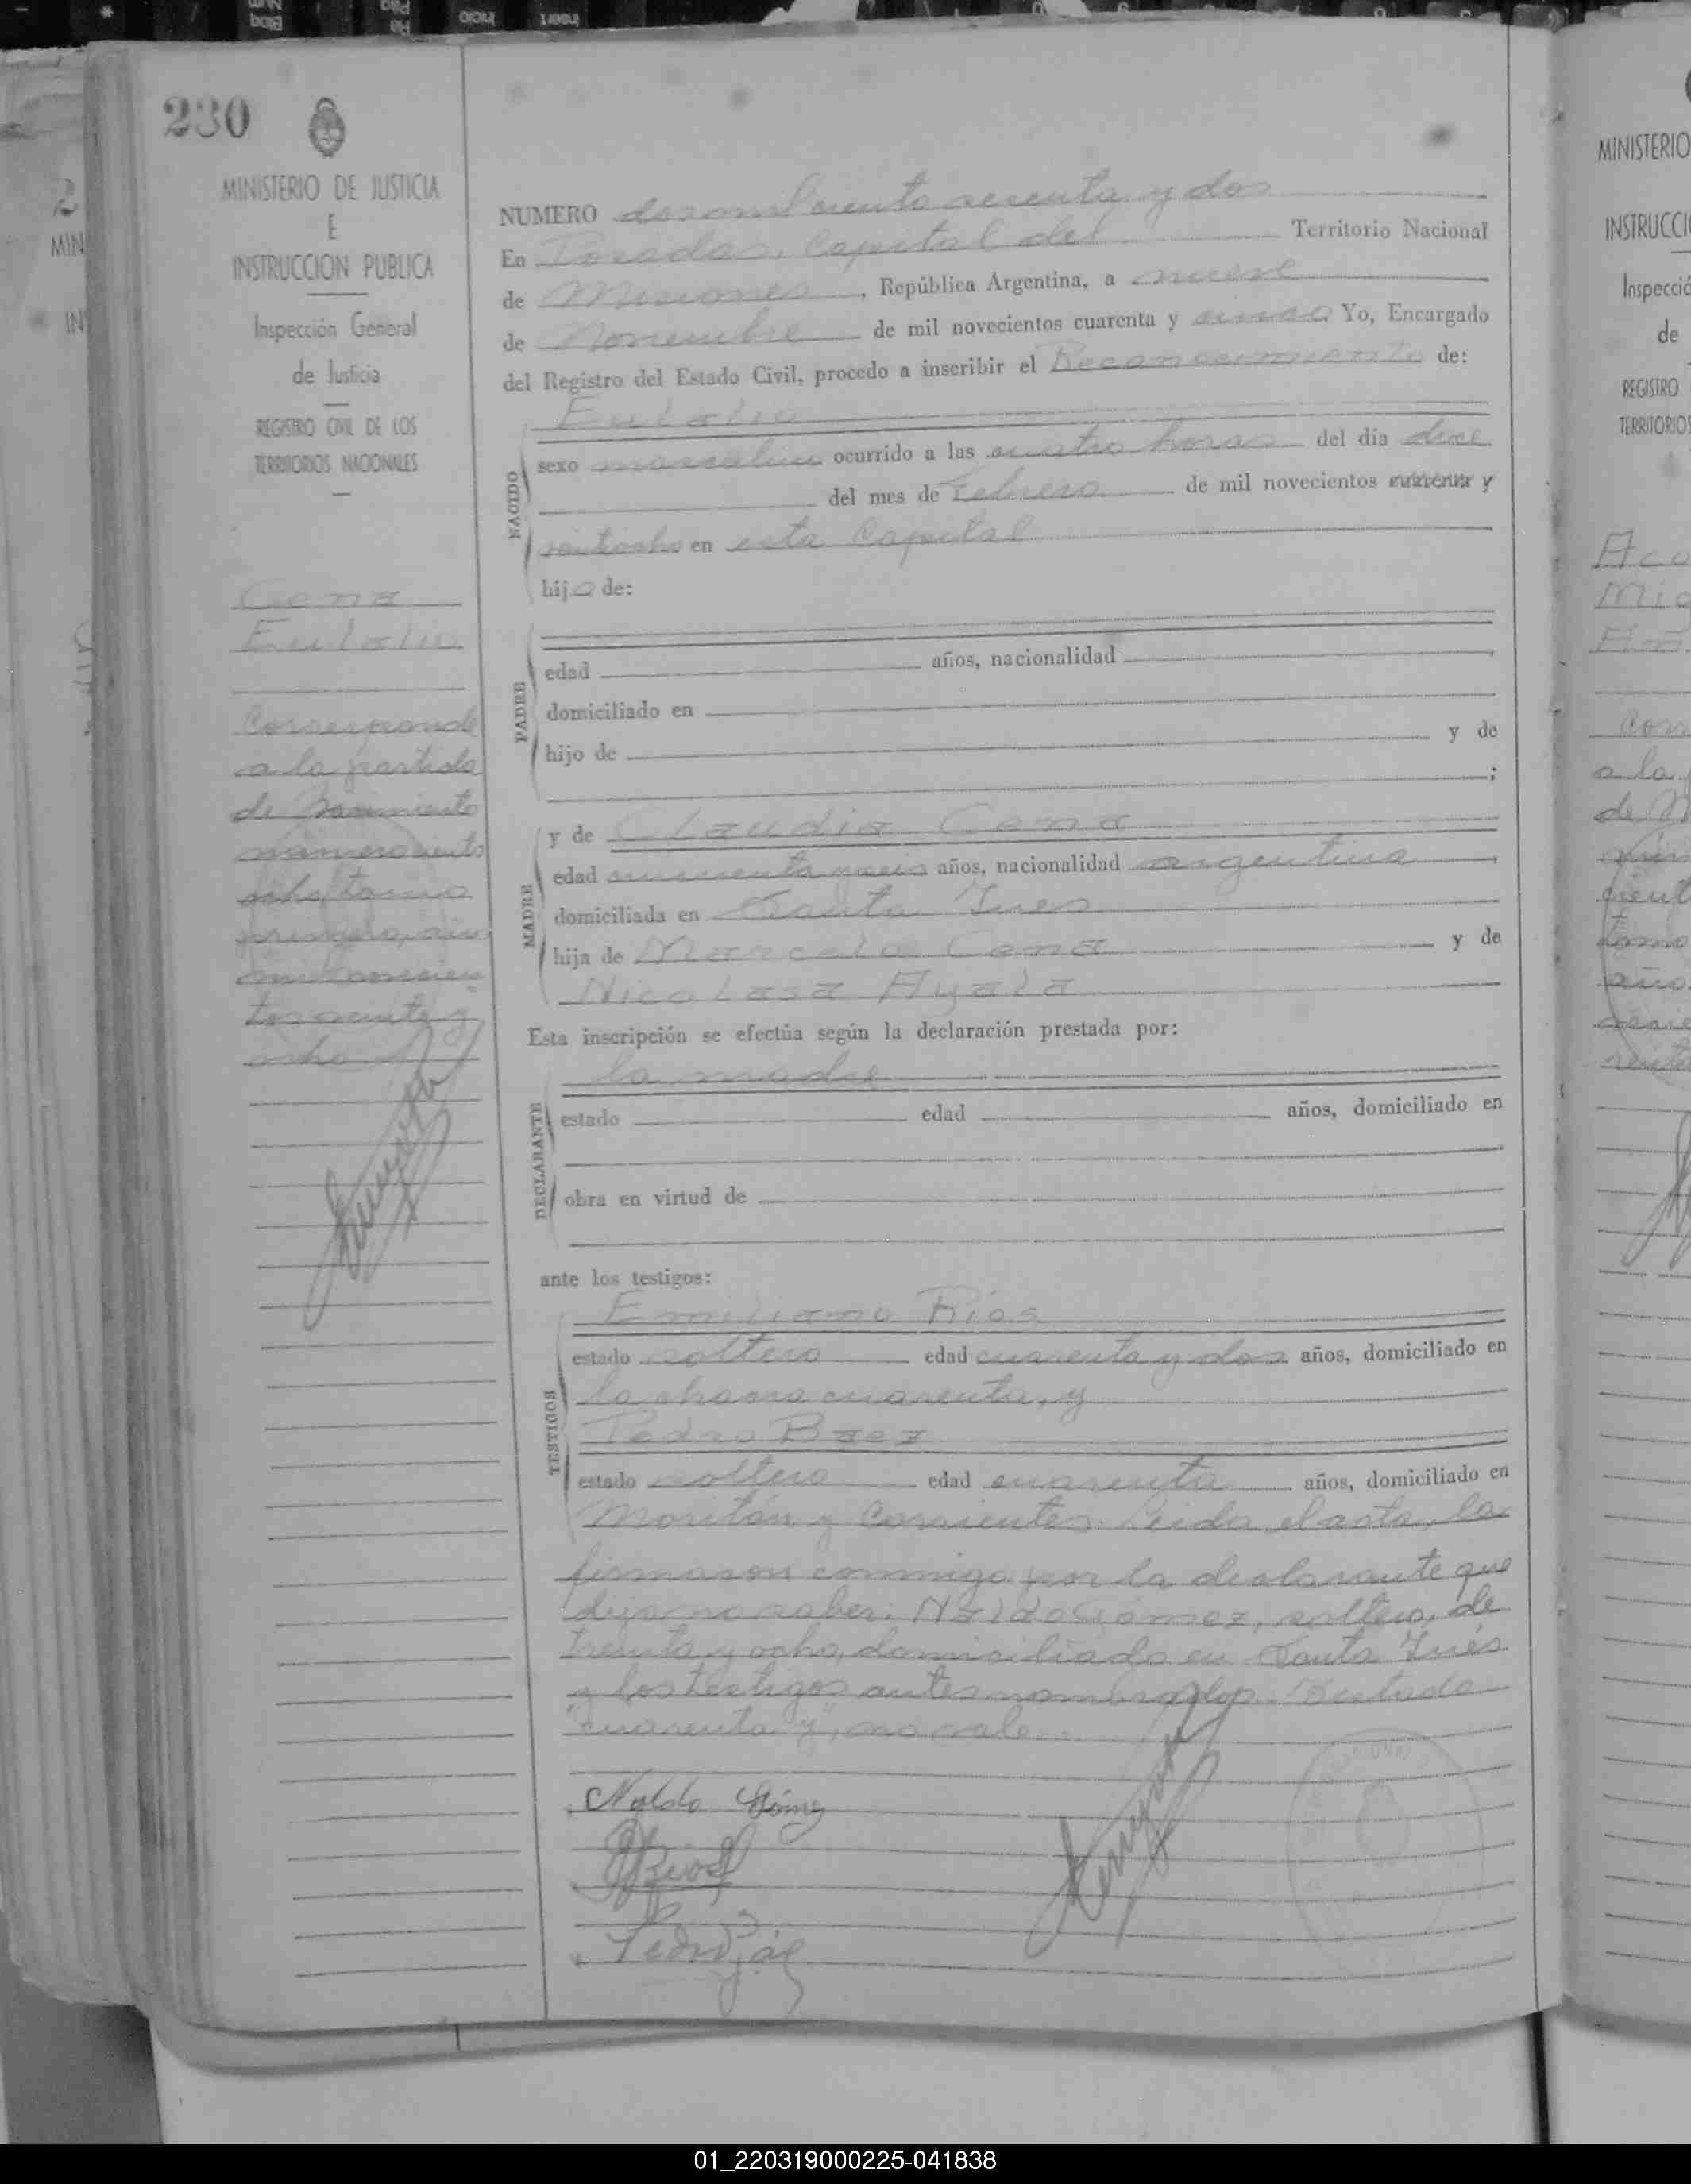 230
MINISTERIO DE JUSTICIA
E
INSTRUCCION PUBLICA
Inspección General
de Justicia
REGISTRO CIVIL DE LOS
TERRITORIOS NACIONALES
Cena
Eulalio
Corresponde
a la partida
de Nacimiento
numero ciento
ocho, tomo
primero, año
mil novecien
tos veinte y
ocho
NUMERO dos mil ciento sesenta y dos
En Posadas, Capital del Territorio Nacional
de Misiones, República Argentina, a nueve
de Noviembre de mil novecientos cuarenta y cinco Yo, Encargado
del Registro del Estado Civil, procedo a inscribir el Reconocimiento de:
Eulalio
NACIDO
sexo masculino ocurrido a las cuatro horas del día doce
del mes de Febrero de mil novecientos cuarenta y
veintiocho en esta Capital
hijo de:
PADRE
edad años, nacionalidad
domiciliado en
hijo de y de
;
MADRE
y de Claudia Cena
edad cincuenta y seis años, nacionalidad argentina
domiciliada en Santa Ines
hija de Marcelo Cena y de
Nicolasa Ayala
Esta inscripción se efectúa según la declaración prestada por:
la madre
DECLARANTE
estado edad años, domiciliado en
obra en virtud de
ante los testigos:
TESTIGOS
Emiliano Ríos
estado soltero edad cuarenta y dos años, domiciliado en
la chacra cuarenta, y
Pedro Baez
estado soltero edad cuarenta años, domiciliado en
Moritán y Corrientes. Leida el acta, la
firmaron conmigo por la declarante que
dijo no saber: Naldo Gómez, soltero, de
treinta y ocho, domiciliado en Santa Inés
y los testigos antes nombrados. Testado
"cuarenta y", no vale.
Naldo Gómez
MINISTERIO
INSTRUCCI
Inspecció
de
REGISTRO
TERRITORIOS
Aco
Mig
Corr
a la
de N
01_220319000225-041838